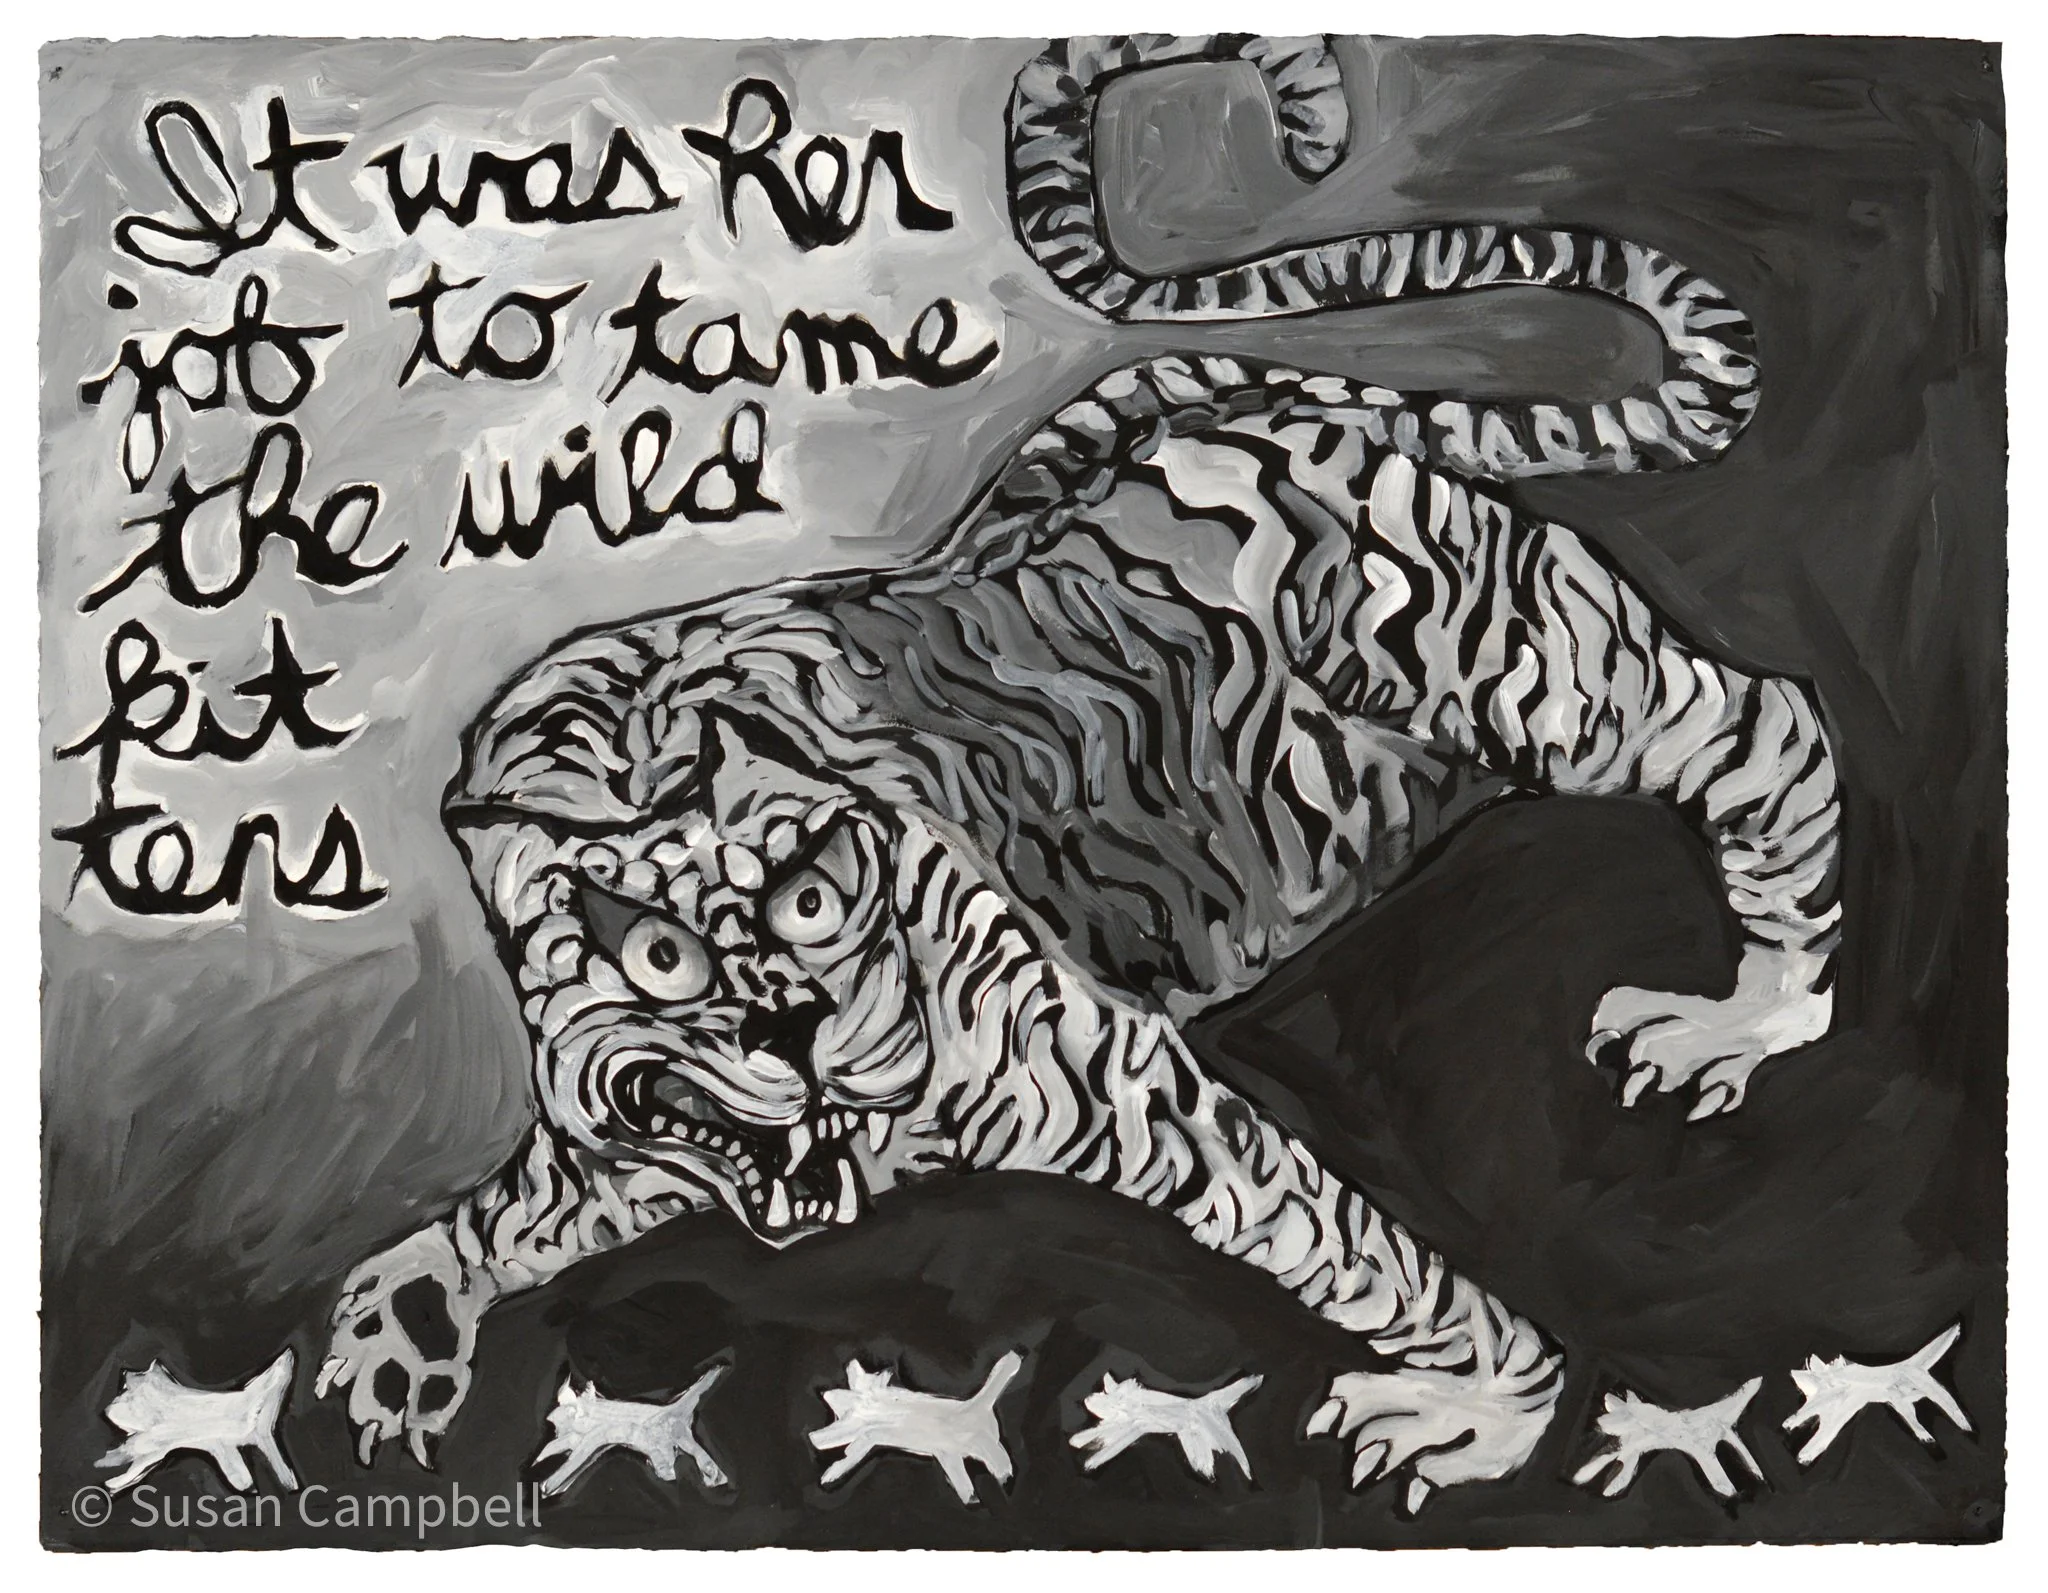 It was her
job to tame
the wild
kit
ters
© Susan Campbell